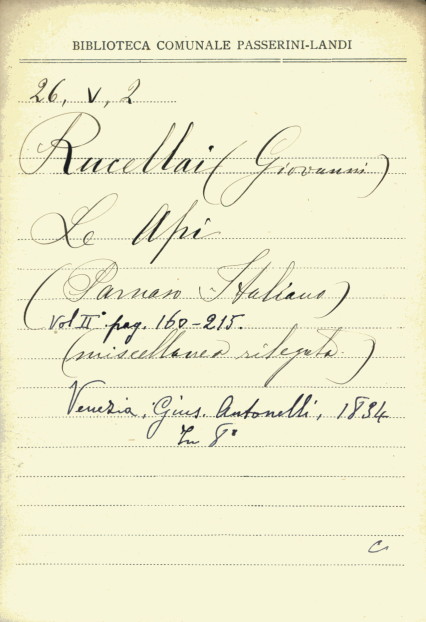 BIBLIOTECA COMUNALE PASSERINI-LANDI
26, V, 2
Rucellai (Giovanni)
Le Api
(Parnaso Italiano)
Vol II° pag. 160-215.
(miscellanea rilegata)
Venezia, Gius. Antonelli, 1834
In 8°
C